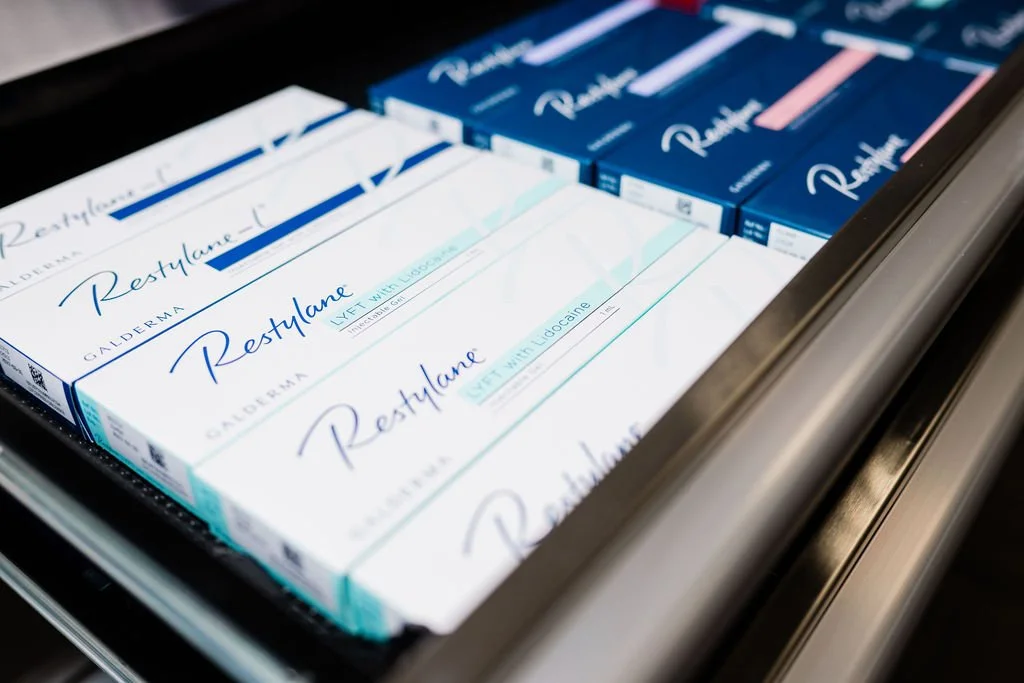 Restylane-L
GALDERMA
Restylane-L
GALDERMA
Restylane
LYFT with Lidocaine
Injectable Gel
GALDERMA
Restylane
LYFT with Lidocaine
Injectable Gel
1 mL
GALDERMA
Restylane
Restylane
Restylane
Restylane
GALDERMA
Restylane